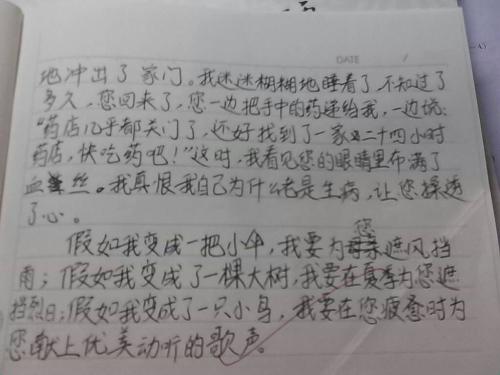 DATE /
地冲出了家门。我迷迷糊糊地睡着了,不知过了
多久,您回来了,您一边把手中的药递给我,一边说:
“药店几乎都关门了,还好找到了一家二十四小时
药店,快吃药吧!”这时,我看见您的眼睛里布满了
血丝。我真恨我自己为什么老是生病,让您操透
了心。
假如我变成一把小伞,我要为您遮风挡
雨;假如我变成了一棵大树,我要在夏季为您遮
挡烈日;假如我变成了一只小鸟,我要在您疲惫时为
您献上优美动听的歌声。